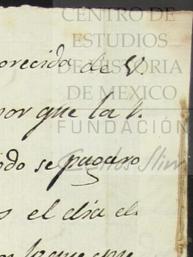 CENTRO DE
ESTUDIOS
DE HISTORIA
DE MEXICO
FUNDACIÓN
Carlos Slim
orecida de V.
por que la
odo se pagaro
el dia de